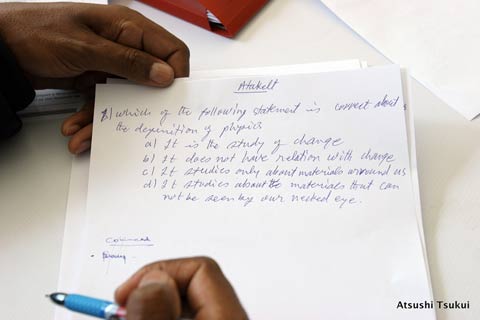 Atakelt
1) which of the following statement is correct about
the definition of physics
a) It is the study of change
b) It does not have relation with change
c) It studies only about materials around us
d) It studies about the materials that can
not be seen by our necked eye.
Atsushi Tsukui